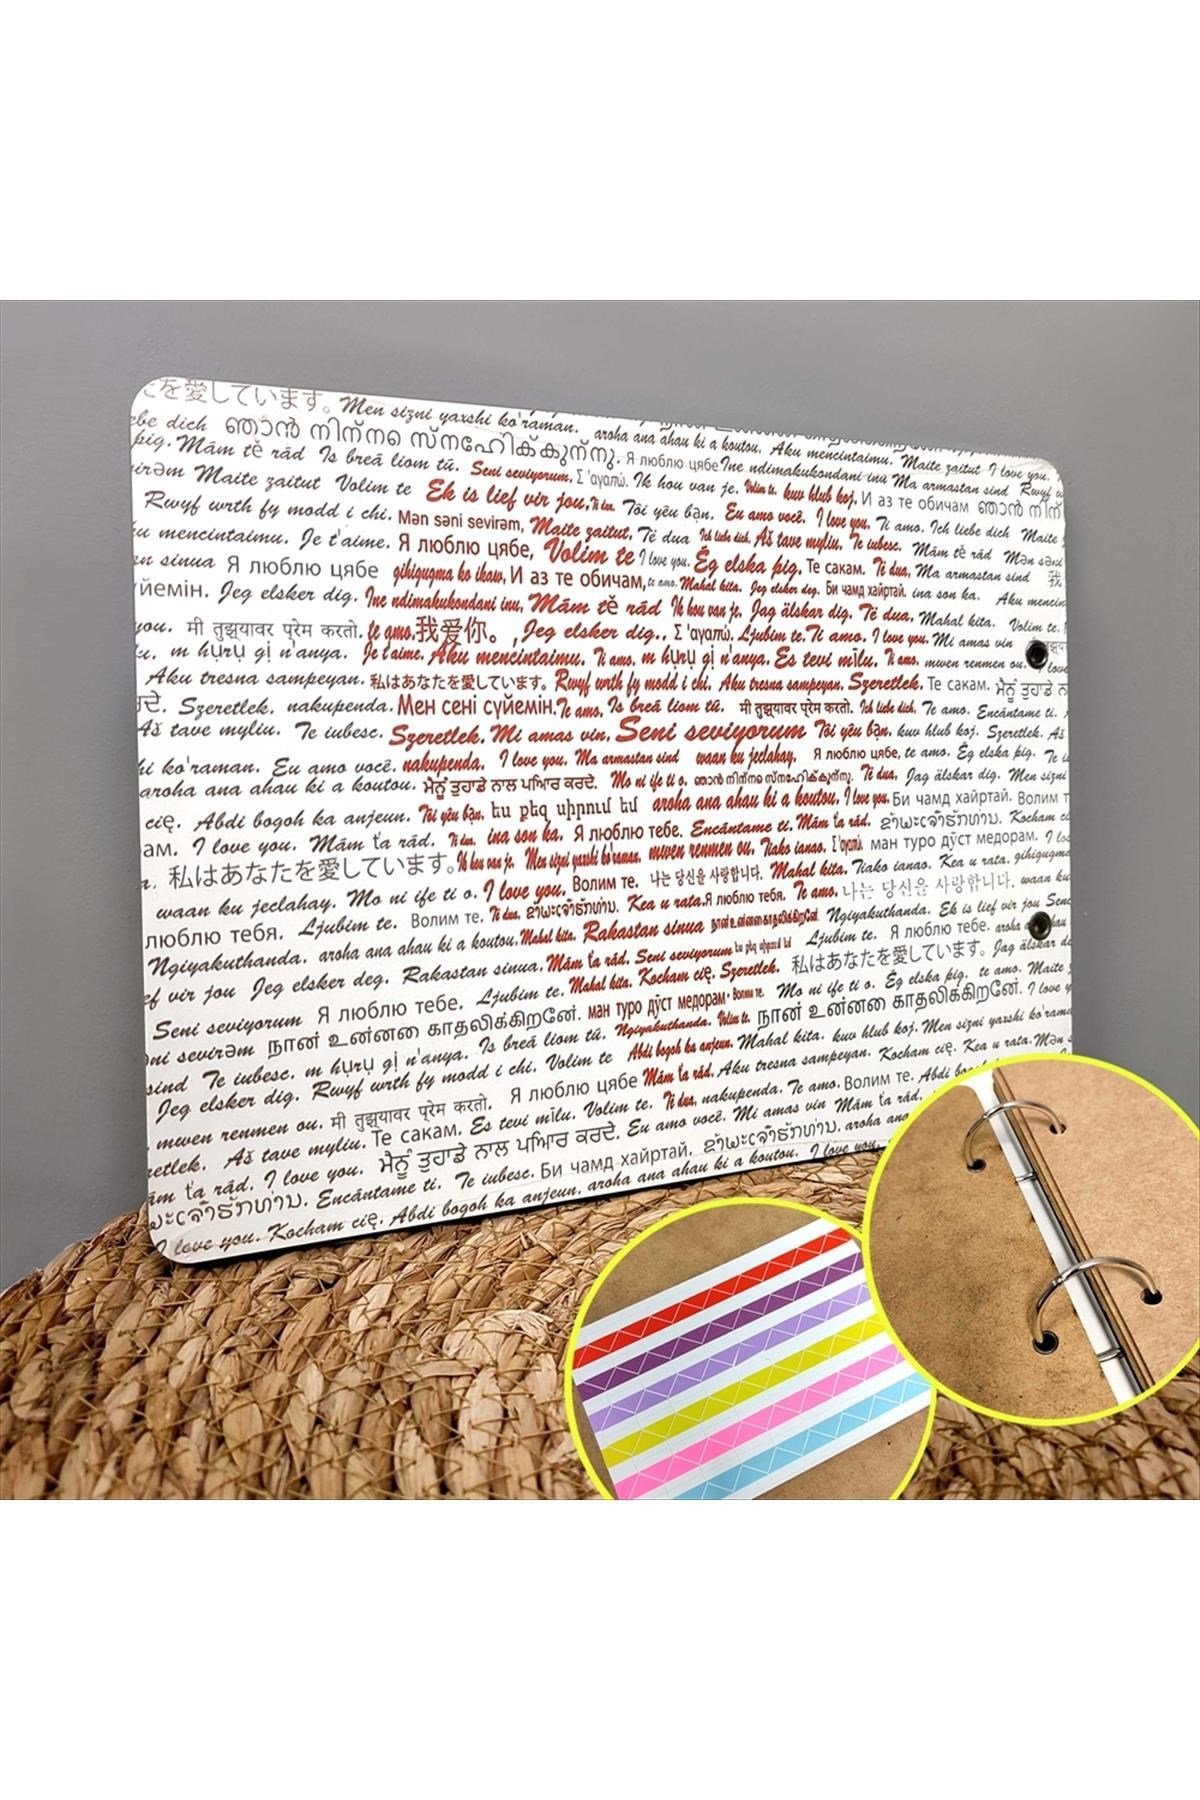 を愛しています。 Men sizni yaxshi ko'raman. aroha ana ahau ki a koutou. Aku mencintaimu. Maite zaitut I love you.
ebe dich ഞാൻ നിന്നെ സ്നേഹിക്കുന്നു. Я люблю цябе Ine ndimakukondani inu Ma armastan sind
þig. Mám tě rád Is breá liom tú. Seni seviyorum, Σ'αγαπώ. Ik hou van je. Volim te. kuv hlub koj. И аз те обичам
Maite zaitut Volim te Ek is lief vir jou, Të dua. Tôi yêu bạn. Eu amo você. I love you. Ti amo. Ich liebe dich
Rwyf wrth fy modd i chi. Mən səni sevirəm, Maite zaitut, Të dua Ich liebe dich. Aš tave myliu. Te iubesc. Mám tě rád
mencintaimu. Je t'aime. Я люблю цябе, Volim te I love you. Ég elska þig. Te сакам. Të dua, Ma armastan sind 我
sinua Я люблю цябе gihigugma ko ikaw, И аз те обичам, te amo. Mahal kita. Jeg elsker deg. Би чамд хайртай. ina son ka. Aku
үйемін. Jeg elsker dig. Ine ndimakukondani inu, Mám tě rád Ik hou van je. Jag älskar dig. Të dua, Mahal kita. Volim te.
you. मी तुझ्यावर प्रेम करतो. te amo. 我爱你。, Jeg elsker dig., Σ'αγαπώ. Ljubim te. Ti amo. I love you. Mi amas vin
m hụrụ gị n'anya. Je t'aime. Aku mencintaimu. Ti amo. m hụrụ gị n'anya. Es tevi mīlu. Ti amo. mwen renmen ou. love
Aku tresna sampeyan. 私はあなたを愛しています。 Rwyf wrth fy modd i chi. Aku tresna sampeyan. Szeretlek. Те сакам. ਮੈਨੂੰ ਤੁਹਾਡੇ
ਦੇ. Szeretlek. nakupenda. Мен сені сүйемін. Te amo. Is breá liom tú. मी तुझ्यावर प्रेम करतो. Ich liebe dich. Te amo. Encántame ti.
Aš tave myliu. Te iubesc. Szeretlek. Mi amas vin. Seni seviyorum Tôi yêu bạn. kuv hlub koj. Szeretlek.
hi ko'raman. Eu amo você. nakupenda. I love you. Ma armastan sind waan ku jeclahay. Я люблю цябе, te amo. Ég elska þig. Te
aroha ana ahau ki a koutou. ਮੈਨੂੰ ਤੁਹਾਡੇ ਨਾਲ ਪਿਆਰ ਕਰਦੇ. Mo ni ife ti o. ഞാൻ നിന്നെ സ്നേഹിക്കുന്നു. Të dua, Jag älskar dig. Men sizni
cię. Abdi bogoh ka anjeun. Tôi yêu bạn. ես քեզ սիրում եմ aroha ana ahau ki a koutou. I love you. Би чамд хайртай. Волим
ам. I love you. Mám ťa rád. Të dua. ina son ka. Я люблю тебе. Encántame ti. Mám ťa rád. ຂ້າພະເຈົ້າຮັກທ່ານ. Kocham
私はあなたを愛しています。 Ik hou van je. Men sizni yaxshi ko'raman. mwen renmen ou. Tiako ianao. Σ'αγαπώ. ман туро дӯст медорам. I
waan ku jeclahay. Mo ni ife ti o. I love you. Волим те. 나는 당신을 사랑합니다. Mahal kita. Tiako ianao. Kea u rata. gihigugma
люблю тебя. Ljubim te. Волим те. Të dua. ຂ້າພະເຈົ້າຮັກທ່ານ. Kea u rata. Я люблю тебя. Te amo. 나는 당신을 사랑합니다. waan
Ngiyakuthanda. aroha ana ahau ki a koutou. Mahal kita. Rakastan sinua நான் உன்னை காதலிக்கிறேன். Ngiyakuthanda. Ek is lief vir jou
ef vir jou Jeg elsker deg. Rakastan sinua, Mám ťa rád. Seni seviyorum ես քեզ սիրում եմ Ljubim te. Я люблю тебе. aroha
Seni seviyorum Я люблю тебе. Ljubim te. Mahal kita. Kocham cię. Szeretlek. 私はあなたを愛しています。 Jag älskar
sevirəm நான் உன்னை காதலிக்கிறேன். ман туро дӯст медорам. Волим те. Mo ni ife ti o. Ég elska þig. te amo. Maite
sind Te iubesc. m hụrụ gị n'anya. Is breá liom tú. Ngiyakuthanda. Volim te. நான் உன்னை காதலிக்கிறேன். I love
Jeg elsker dig. Rwyf wrth fy modd i chi. Volim te Abdi bogoh ka anjeun. Mahal kita. kuv hlub koj. Men sizni yaxshi ko'rama
mwen renmen ou. मी तुझ्यावर प्रेम करतो. Я люблю цябе Mám ťa rád. Aku tresna sampeyan. Kocham cię. Kea u rata.
retlek. Aš tave myliu. Те сакам. Es tevi mīlu. Volim te. Të dua, nakupenda. Te amo. Волим те. Abdi
ám ťa rád. I love you. ਮੈਨੂੰ ਤੁਹਾਡੇ ਨਾਲ ਪਿਆਰ ਕਰਦੇ. Eu amo você. Mi amas vin Mám ťa rád.
ຮັກທ່ານ. Encántame ti. Te iubesc. Би чамд хайртай. ຂ້າພະເຈົ້າຮັກທ່ານ. aroha
I love you. Kocham cię. Abdi bogoh ka anjeun. aroha ana ahau ki a koutou. I love you.